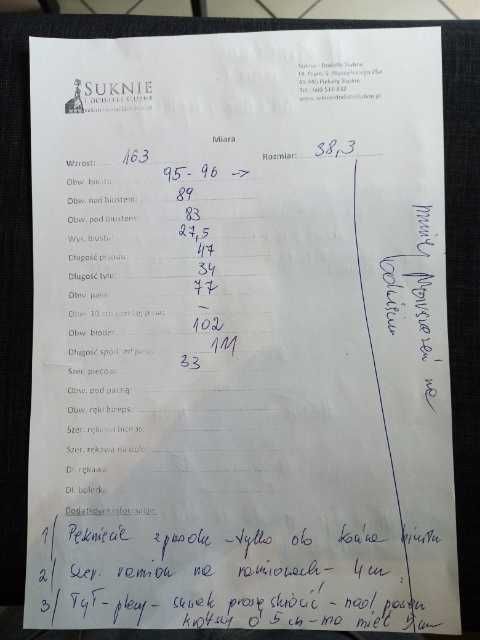 SUKNIE
Suknie - Dodatki Ślubne
41-940 Piekary Śląskie
Miara
Wzrost: 163
Rozmiar: 38,3
Obw. biustu: 95 - 96 →
Obw. nad biustem: 89
Obw. pod biustem: 83
Wys. biustu: 27,5
Długość przodu: 47
Długość tyłu: 34
Obw. pasa: 77
–
Obw. bioder: 102
Długość spód. od pasa: 111
Szer. pleców: 33
Obw. pod pachą:
Obw. ręki biceps:
Szer. rękawa na dole:
Dł. rękawa:
Dł. bolerka:
Dodatkowe informacje:
1/ Pęknięcie z przodu - tylko do końca biustu
2/ Szer. ramion na ramionach - 4 cm
3/ Tył - plecy - suwak proszę skrócić - nad pasem
krótszy o 5 cm - ma mieć 9 cm
mniej na